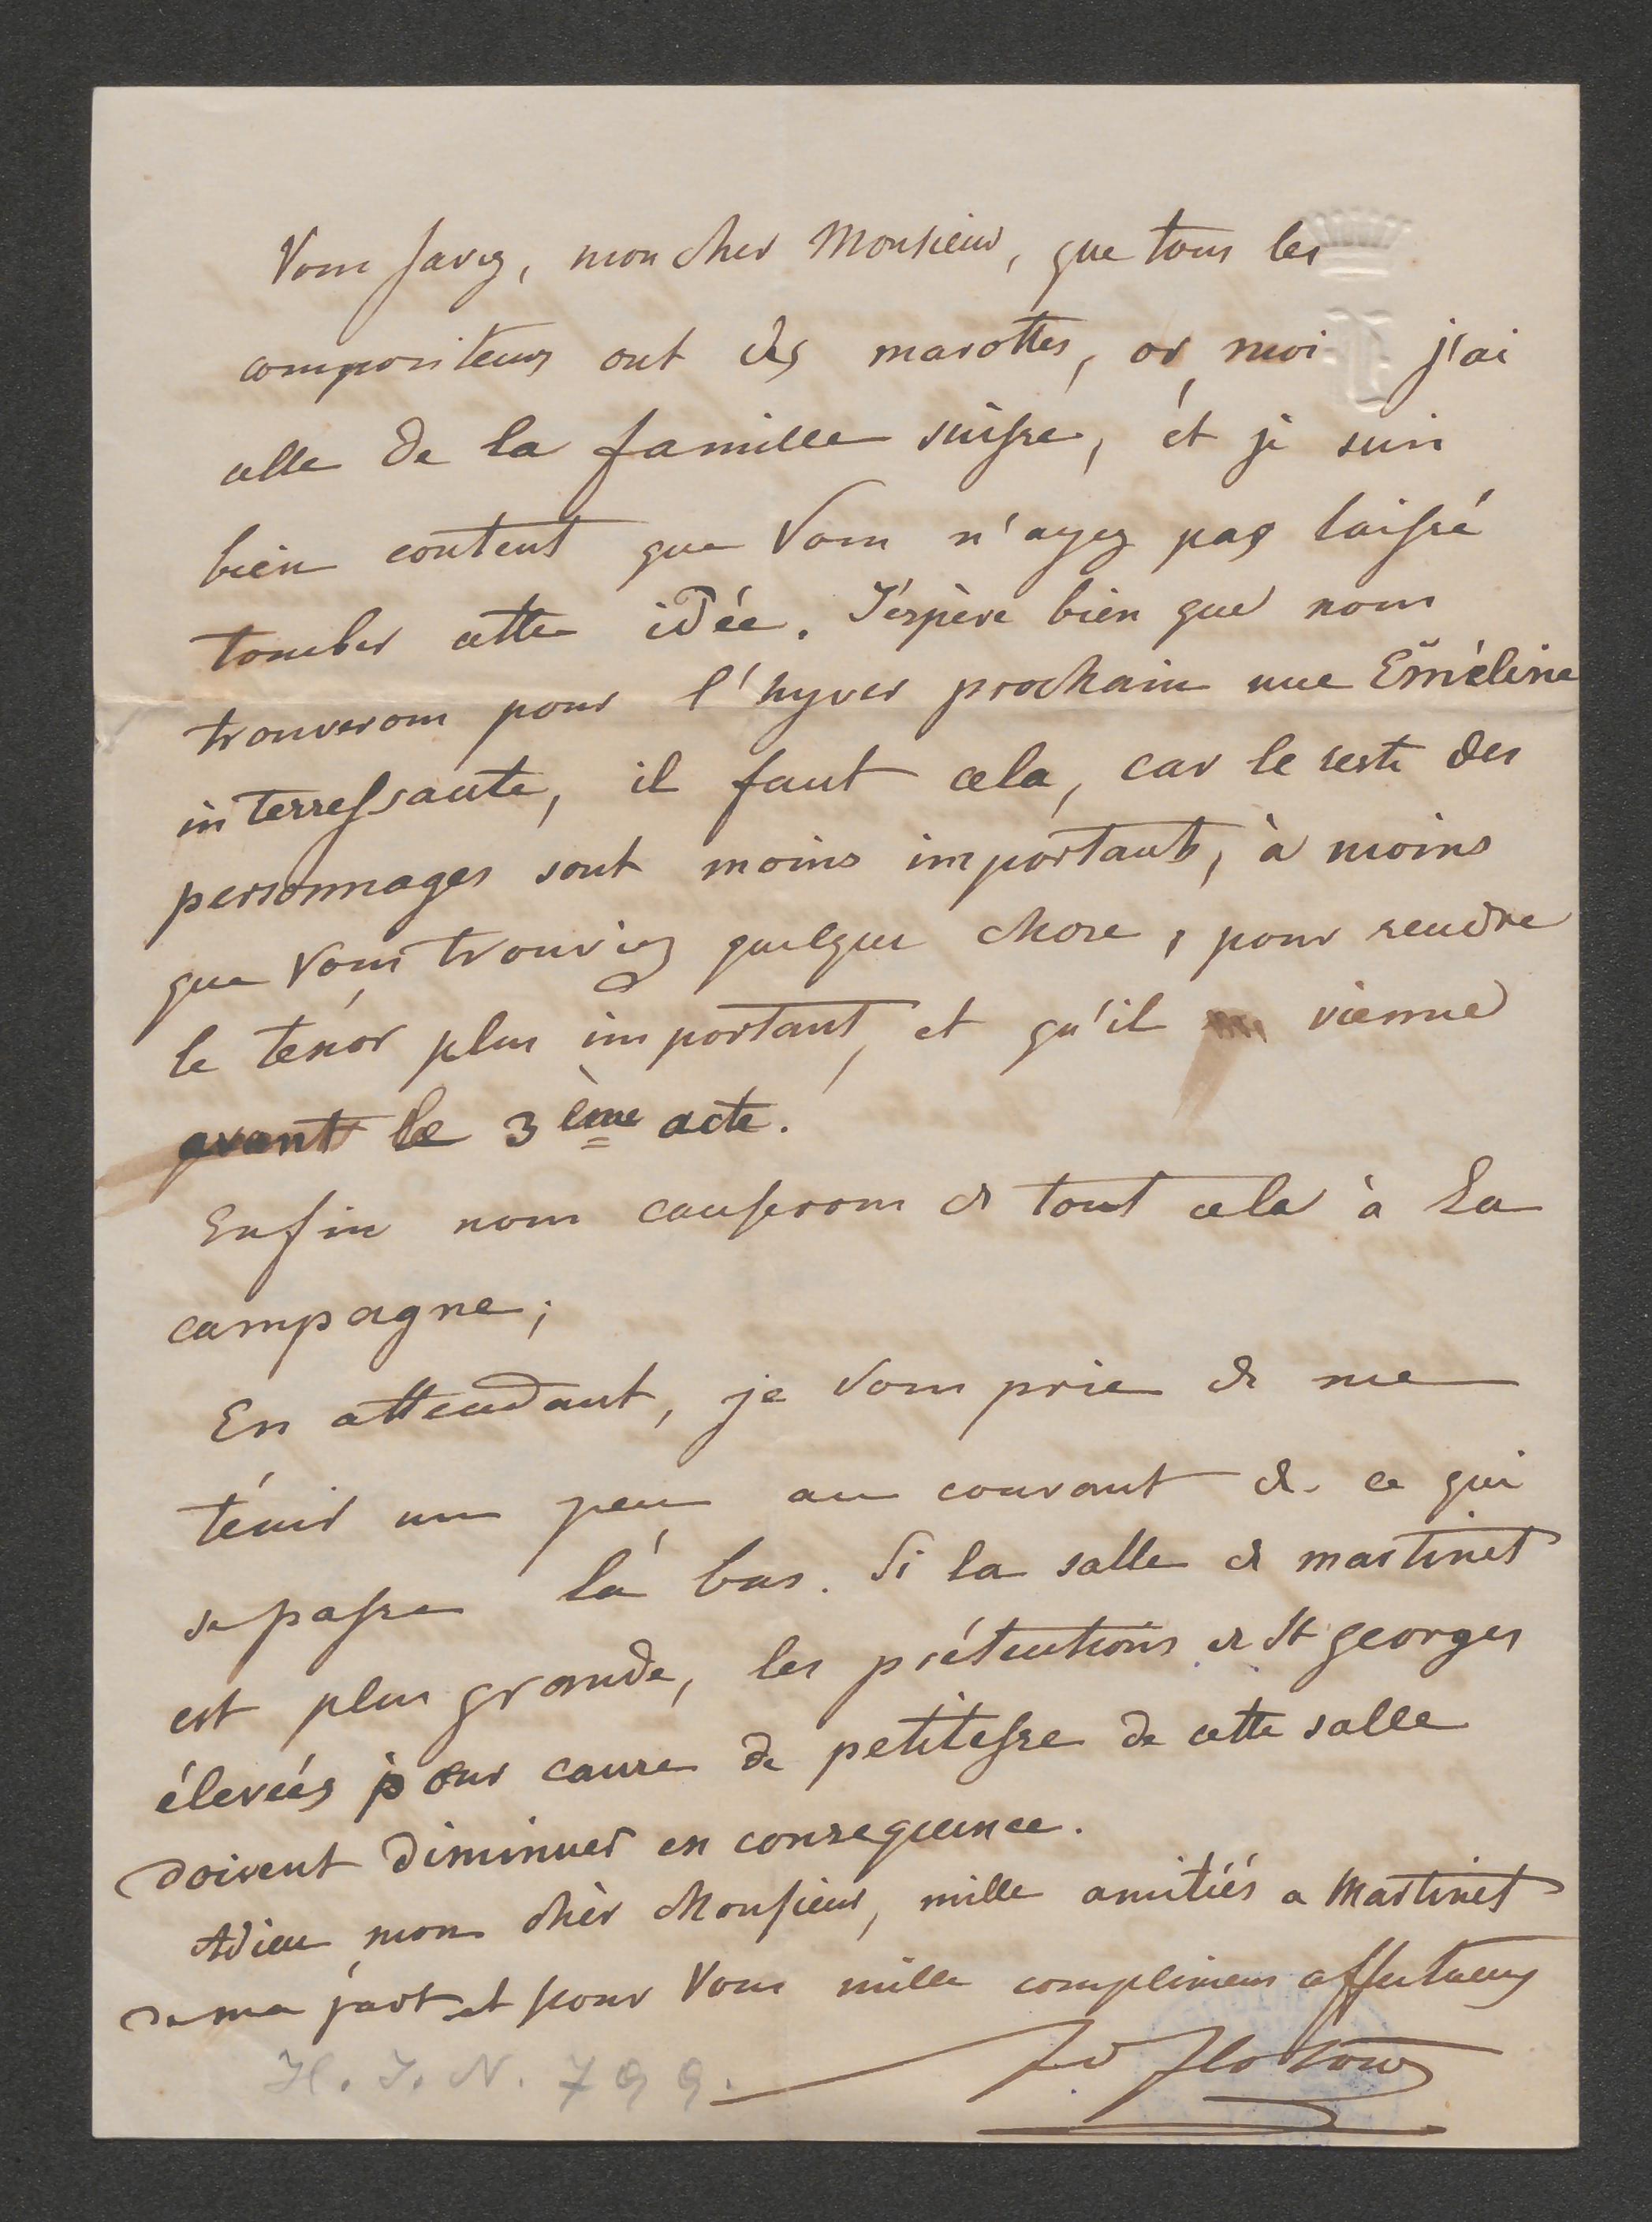 Vous savez, mon cher Monsieur, que tous les
compositeurs ont des marottes, or, moi j'ai
celle de la famille suisse, et je suis
bien content que Vous n'ayez pas laissé
tomber cette idée. J'espère bien que nous
trouverons pour l'hyver prochain une Eméline
interressante, il faut cela, car le reste des
personnages sont moins importants, à moins
que Vous trouviez quelque chose, pour rendre
le ténor plus important, et qu'il vienne
avant le 3ème acte.
Enfin nous causerons de tout cela à La
campagne;
En attendant, je Vous prie de me
ténir un peu au courant de ce qui
se passe là bas. Si la salle de Martinet
est plus grande, les prétentions de St Georges
élevées pour cause de petitesse de cette salle
doivent diminuer en consequence.
Adieu, mon chèr Monsieur, mille amitiés a Martinet
de ma part et pour Vous mille complimens affectueux
Fd Flotow
H. I. N. 799.